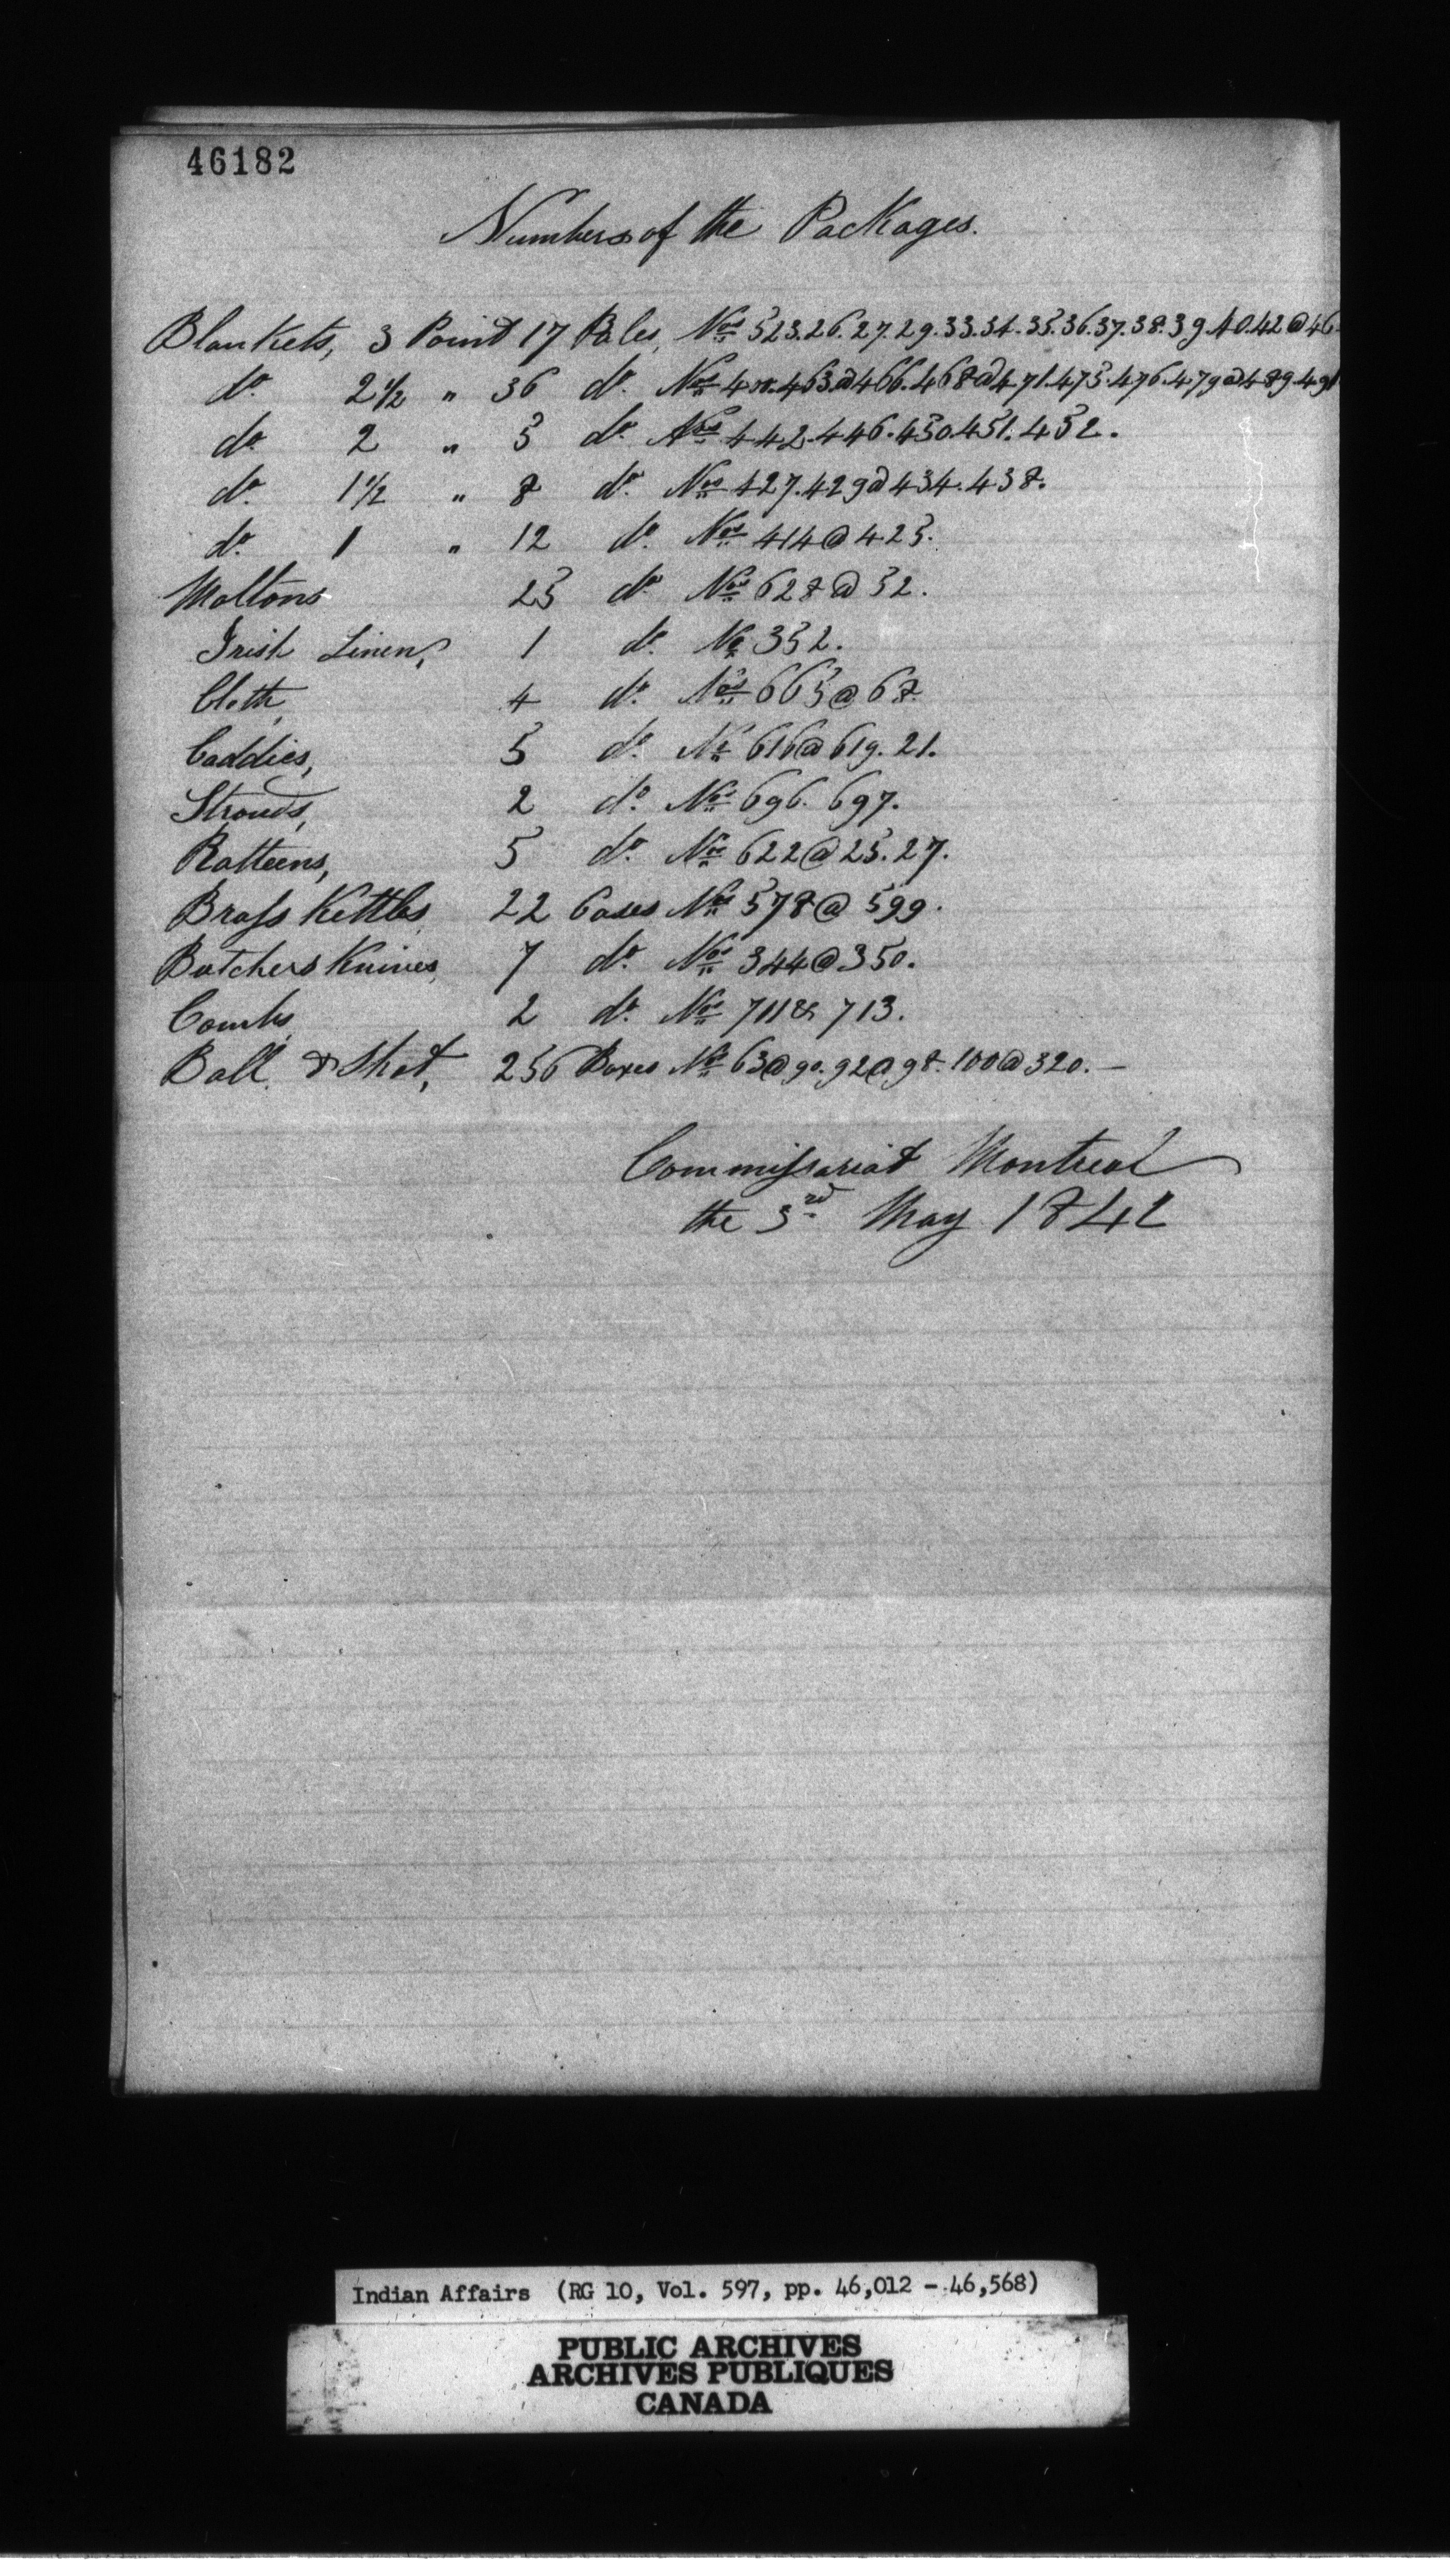 46182
Numbers of the Packages.
Blankets, 3 Point 17 Bales, Nos 523.26.27.29.33.34.35.36.37.38.39.40.42@46
do. 2 1/2 " 36 do. Nos 463@466.468@471.475.476.479@489.491
do. 2 " 5 do. Nos 442.446.450.451.452.
do. 1 1/2 " 8 do. Nos 427.429@434.438.
do. 1 " 12 do. Nos 414@425.
Moltons 25 do. Nos 628@52.
Irish Linen, 1 do. No 352.
Cloth, 4 do. Nos 665@68.
Caddies, 5 do. Nos 616@619.21.
Strouds, 2 do. Nos 696. 697.
Ratteens, 5 do. Nos 622@25.27.
Brass Kettles, 22 Cases Nos 578@599.
Butchers Knives, 7 do. Nos 344@350.
Combs, 2 do. Nos 711 & 713.
Ball & Shot, 256 Boxes Nos 63@90.92@98.100@320.—
Commissariat Montreal
the 3rd May 1842
Indian Affairs (RG 10, Vol. 597, pp. 46,012 - 46,568)
PUBLIC ARCHIVES
ARCHIVES PUBLIQUES
CANADA